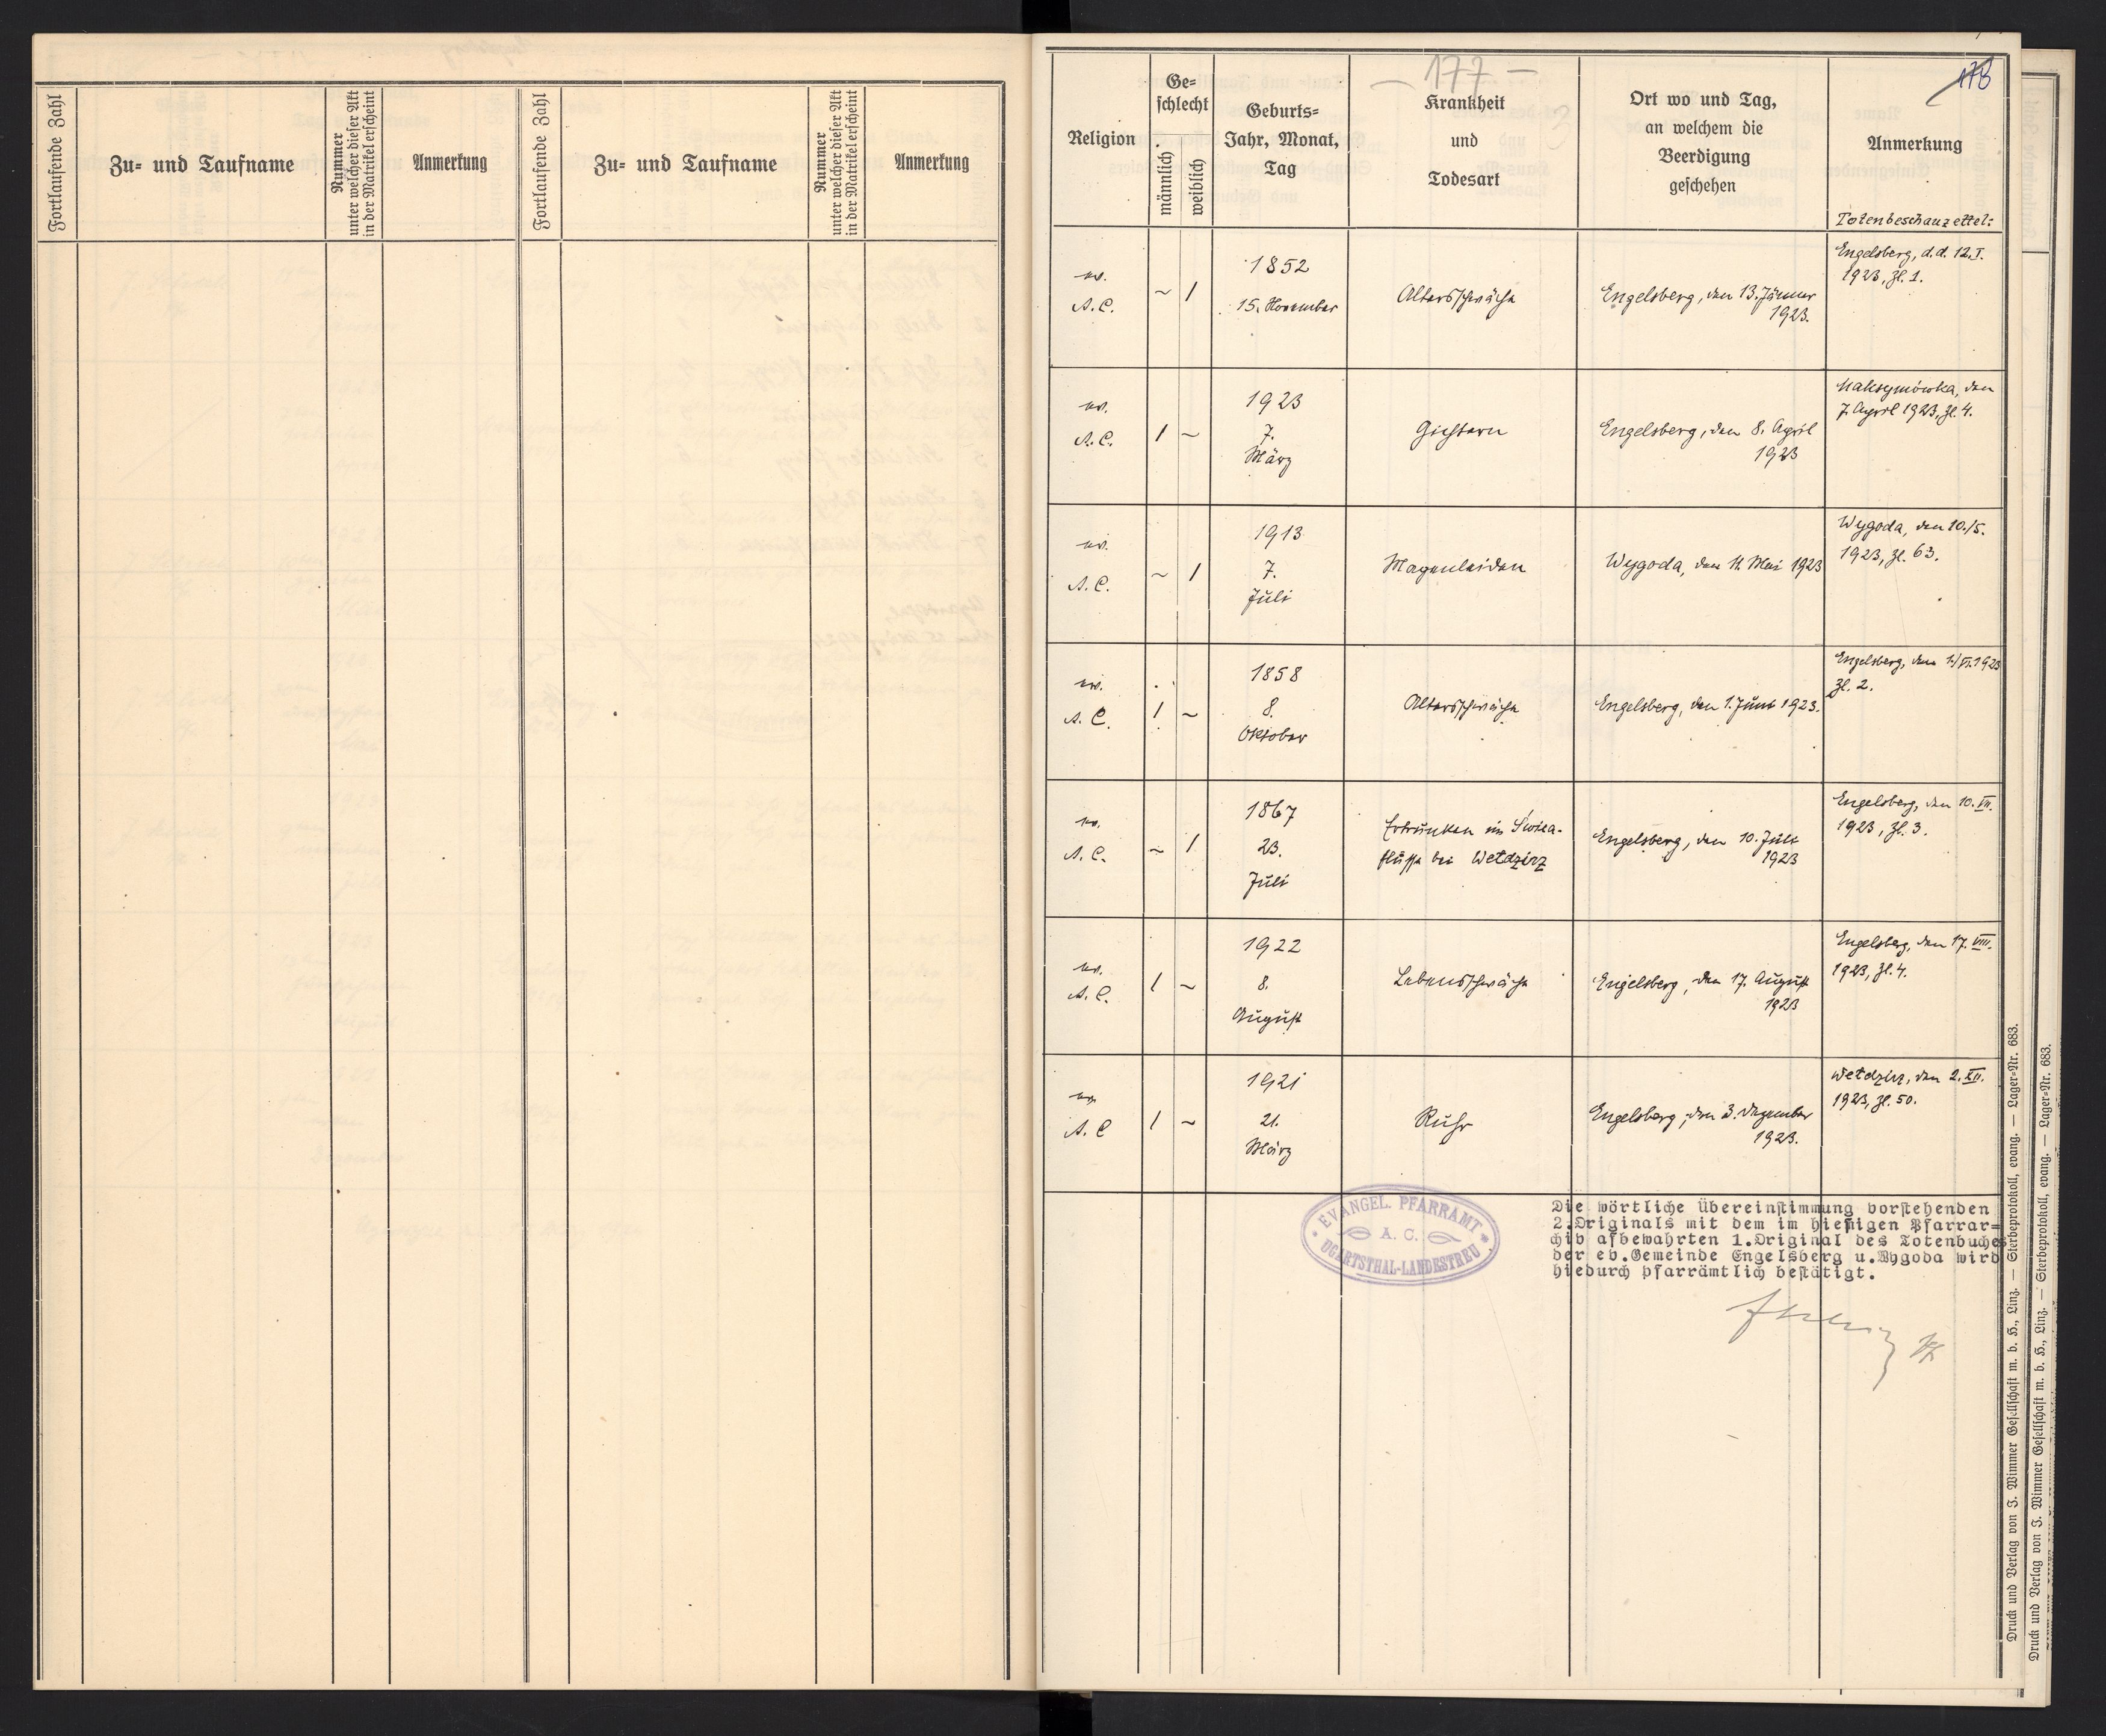 Fortlaufende Zahl
Zu= und Taufname
Nummer
unter welcher dieser Akt
in der Matrikel erscheint
Anmerkung
Fortlaufende Zahl
Zu= und Taufname
Nummer
unter welcher dieser Akt
in der Matrikel erscheint
Anmerkung
– 177 –
178
Religion
Ge=
schlecht
männlich
weiblich
Geburts=
Jahr, Monat,
Tag
Krankheit
und
Todesart
Ort wo und Tag,
an welchem die
Beerdigung
geschehen
Anmerkung
Totenbeschauzettel:
ev.
A.C.
~ 1
1852
15. November
Altersschwäche
Engelsberg, den 13. Jänner
1923.
Engelsberg, d.d. 12.I.
1923, Zl. 1.
ev.
A.C.
1 ~
1923
7.
März
Gichtern
Engelsberg, den 8. April
1923
Maksymówka, den
7. April 1923, Zl. 4.
ev.
A.C.
~ 1
1913
7.
Juli
Magenleiden
Wygoda, den 11. Mai 1923
Wygoda, den 10./5.
1923, Zl. 63.
ev.
A.C.
1 ~
1858
8.
Oktober
Altersschwäche
Engelsberg, den 1. Juni 1923.
Engelsberg, den 1./VI.1923
Zl. 2.
ev.
A.C.
~ 1
1867
23.
Juli
Ertrunken im Swica-
flusse bei Wetdzirz
Engelsberg, den 10. Juli
1923
Engelsberg, den 10. VII.
1923, Zl. 3.
ev.
A.C.
1 ~
1922
8.
August
Lebensschwäche
Engelsberg, den 17. August
1923
Engelsberg, den 17. VIII.
1923, Zl. 4.
ev.
A.C
1 ~
1921
21.
März
Ruhr
Engelsberg, den 3. Dezember
1923.
Wetdzirz, den 2. XII.
1923, Zl. 50.
EVANGEL. PFARRAMT
A. C.
UGARTSTHAL-LANDESTREU
Die wörtliche Übereinstimmung vorstehenden
2.Originals mit dem im hiesigen Pfarrar=
chiv afbewahrten 1.Original des Totenbuches
der ev.Gemeinde Engelsberg u.Wygoda wird
hiedurch pfarrämtlich bestätigt.
Druck und Verlag von J. Wimmer Gesellschaft m. b. H., Linz. — Sterbeprotokoll, evang. — Lager=Nr. 683.
Druck und Verlag von J. Wimmer Gesellschaft m. b. H., Linz. — Sterbeprotokoll, evang. — Lager=Nr. 683.